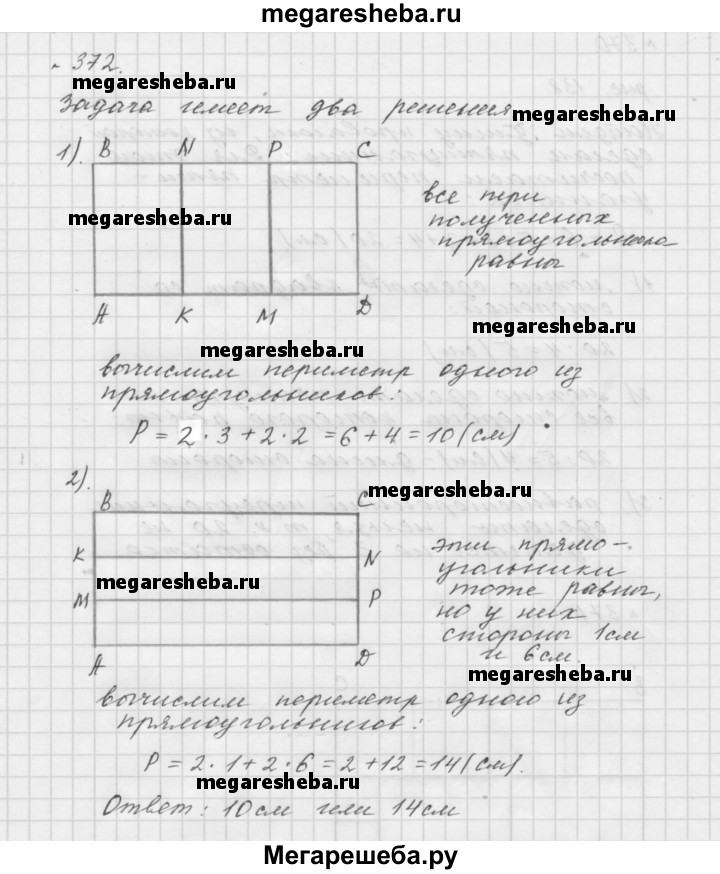 megaresheba.ru
№ 372.
megaresheba.ru
Задача имеет два решения
megaresheba.ru
1).
B N P C
megaresheba.ru
все три
полученных
прямоугольника
равны
A K M D
megaresheba.ru
megaresheba.ru
вычислим периметр одного из
прямоугольников:
P = 2 · 3 + 2 · 2 = 6 + 4 = 10 (см)
2).
megaresheba.ru
B C
K N
M P
A D
megaresheba.ru
эти прямо-
угольники
тоже равны,
но у них
стороны 1см
и 6см.
megaresheba.ru
вычислим периметр одного из
прямоугольников:
P = 2 · 1 + 2 · 6 = 2 + 12 = 14 (см).
megaresheba.ru
Ответ: 10 см или 14 см
Мегарешеба.ру